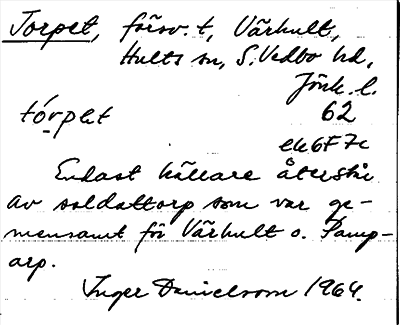 Torpet, försv. t, Vårhult,
Hults sn, S. Vedbo hd,
Jönk. l.
tórpət 62
ek6F7c
Endast källare återstår
av soldattorp som var ge-
mensamt för Vårhult o. Pamp-
arp.
Inger Danielsson 1964.